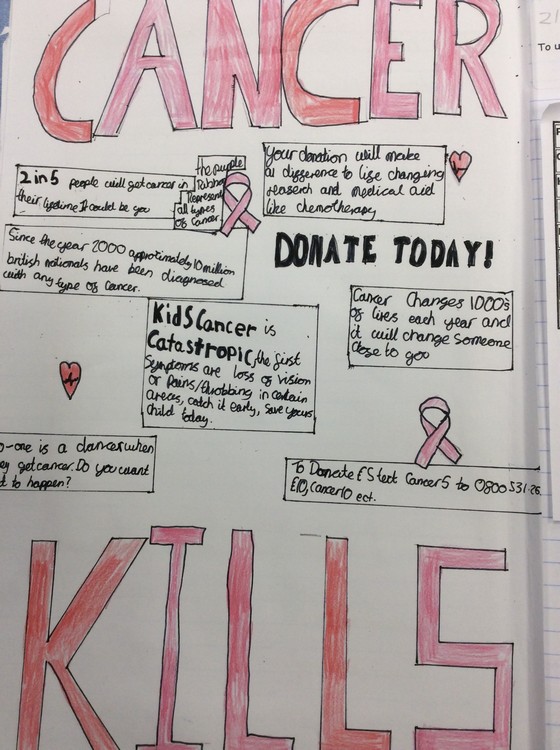 CANCER
2 in 5 people will get cancer in
their lifetime. It could be you
the purple
Ribbon
Represents
all types
of Cancer.
Your donation will make
a difference to life changing
research and medical aid
like chemotherapy
DONATE TODAY!
Since the year 2000 approximately 10 million
british nationals have been diagnosed
with any type of cancer.
Kids Cancer is
Catastropic, the first
Symptoms are loss of vision
or Pains/throbbing in certain
areas, catch it early, save yours
child today.
Cancer Changes 1000's
of lives each year and
it will change someone
close to you
o-one is a dancer when
ey get cancer. Do you want
t to happen?
To Donate £5 text Cancer5 to 0800 531 26
£10, Cancer10 ect.
KILLS
To u